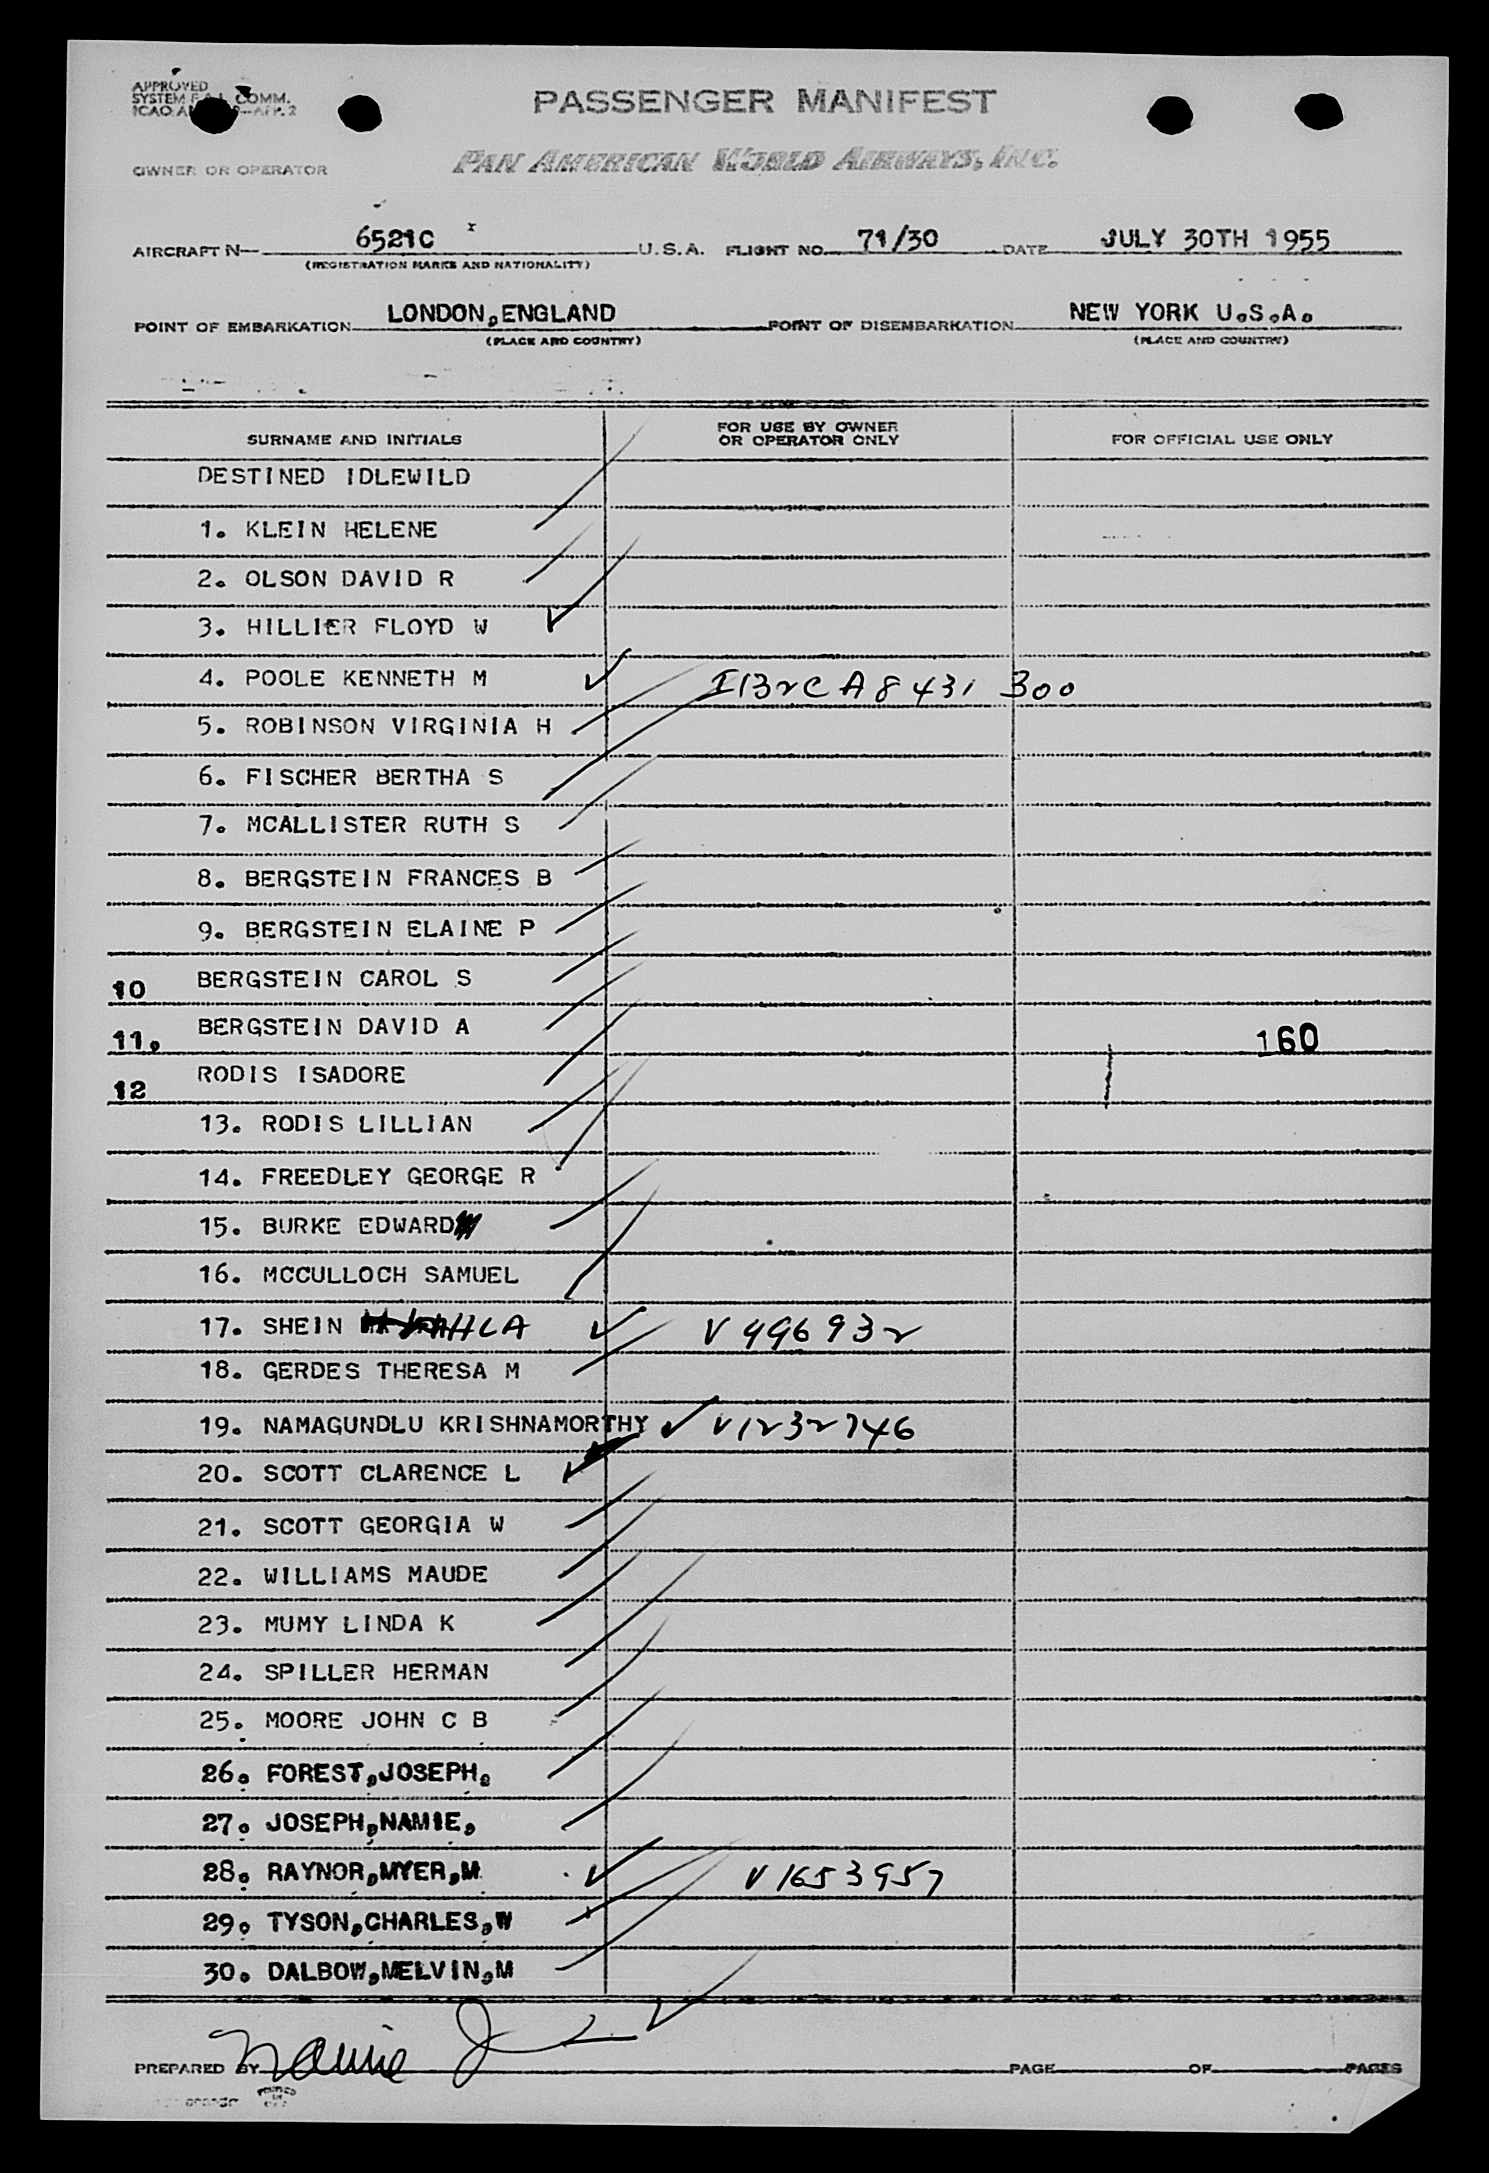 APPROVED
SYSTEM F.A.L. COMM.
PASSENGER MANIFEST
OWNER OR OPERATOR PAN AMERICAN WORLD AIRWAYS, INC.
AIRCRAFT N— 6521C U.S.A. FLIGHT NO. 71/30 DATE JULY 30TH 1955
(REGISTRATION MARKS AND NATIONALITY)
POINT OF EMBARKATION LONDON,ENGLAND POINT OF DISEMBARKATION NEW YORK U.S.A.
(PLACE AND COUNTRY) (PLACE AND COUNTRY)
SURNAME AND INITIALS FOR USE BY OWNER OR OPERATOR ONLY FOR OFFICIAL USE ONLY
DESTINED IDLEWILD
1. KLEIN HELENE
2. OLSON DAVID R
3. HILLIER FLOYD W
4. POOLE KENNETH M I132C A8431 300
5. ROBINSON VIRGINIA H
6. FISCHER BERTHA S
7. MCALLISTER RUTH S
8. BERGSTEIN FRANCES B
9. BERGSTEIN ELAINE P
10 BERGSTEIN CAROL S
11. BERGSTEIN DAVID A 160
12 RODIS ISADORE
13. RODIS LILLIAN
14. FREEDLEY GEORGE R
15. BURKE EDWARD
16. MCCULLOCH SAMUEL
17. SHEIN V996932
18. GERDES THERESA M
19. NAMAGUNDLU KRISHNAMORTHY V1232746
20. SCOTT CLARENCE L
21. SCOTT GEORGIA W
22. WILLIAMS MAUDE
23. MUMY LINDA K
24. SPILLER HERMAN
25. MOORE JOHN C B
26. FOREST,JOSEPH.
27. JOSEPH,NAMIE,
28. RAYNOR,MYER,M V1653957
29. TYSON,CHARLES,W
30. DALBOW,MELVIN,M
PREPARED BY Namie J PAGE OF PAGES